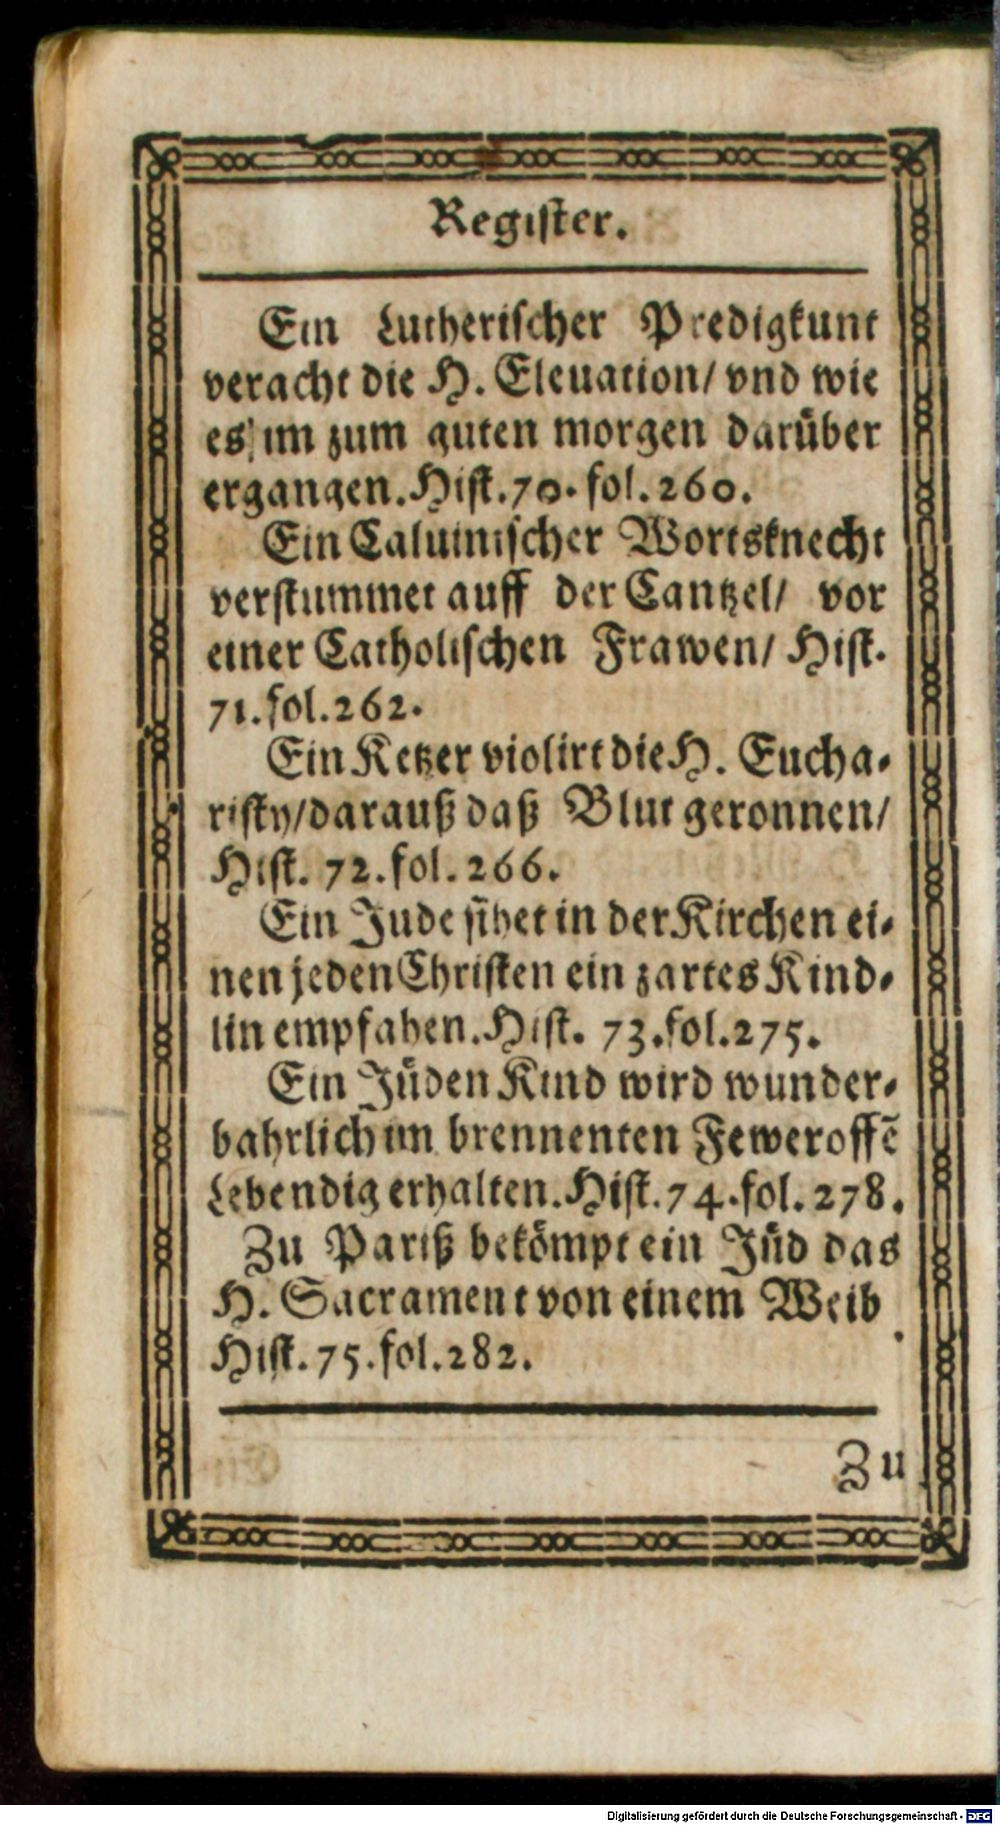 Register.
Ein Lutherischer Predigkunt
veracht die H. Eleuation/ vnd wie
es im zum guten morgen darüber
ergangen. Hist. 70. fol. 260.
Ein Caluinischer Wortsknecht
verstummet auff der Cantzel/ vor
einer Catholischen Frawen/ Hist.
71. fol. 262.
Ein Ketzer violirt die H. Eucha-
risty/ darauß daß Blut geronnen/
Hist. 72. fol. 266.
Ein Jude sihet in der Kirchen ei-
nen jeden Christen ein zartes Kind-
lin empfahen. Hist. 73. fol. 275.
Ein Jüden Kind wird wunder-
bahrlich im brennenten Feweroffẽ
Lebendig erhalten. Hist. 74. fol. 278.
Zu Pariß bekömpt ein Jüd das
H. Sacrament von einem Weib
Hist. 75. fol. 282.
Zu
Digitalisierung gefördert durch die Deutsche Forschungsgemeinschaft - DFG